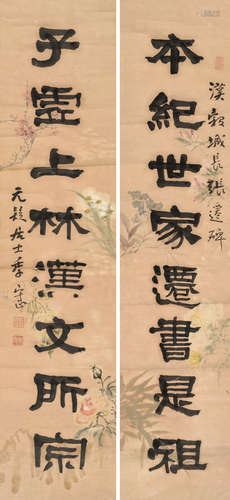 本紀世家遷書是祖
漢穀城長張遷碑
子虛上林漢文所宗
元髮居士季守正